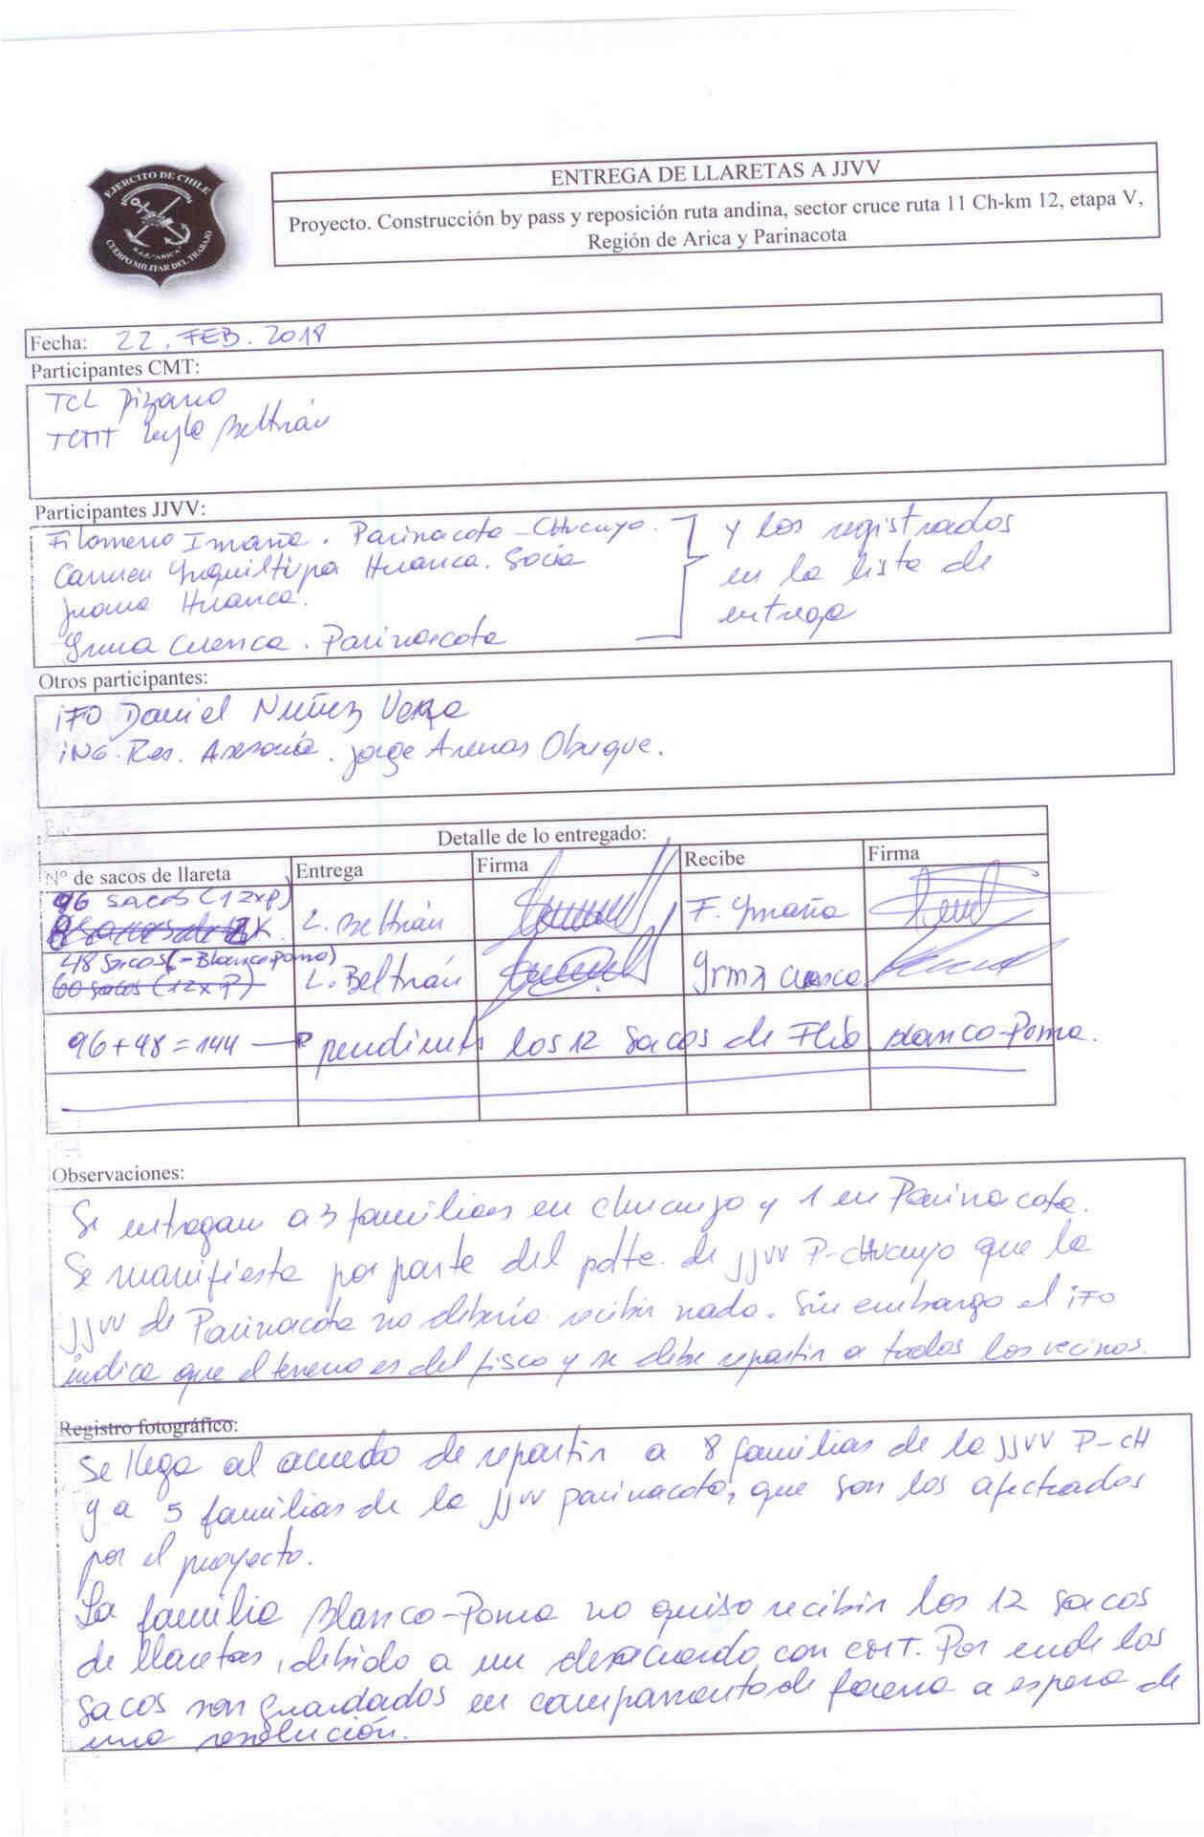 EJERCITO DE CHILE
CUERPO MILITAR DEL TRABAJO
ENTREGA DE LLARETAS A JJVV
Proyecto. Construcción by pass y reposición ruta andina, sector cruce ruta 11 Ch-km 12, etapa V,
Región de Arica y Parinacota
Fecha: 22. FEB. 2018
Participantes CMT:
TCL Pizarro
Beltrán
Participantes JJVV:
Filomeno Imaña. Parinacota-CHucuyo. y los registrados
Carmen Huanca. Socia en la lista de
Juana Huanca. entrega
Yrma Cuenca. Parinacota
Otros participantes:
iFO Daniel Nuñez
iNG. Res. Asesoría. Jorge Arenas
Detalle de lo entregado:
Nº de sacos de llareta Entrega Firma Recibe Firma
96 sacos (12xP)
L. Beltrán F. Ymaña
48 sacos (-Blanco Poma)
60 sacos (12xP) L. Beltrán Yrma Cuenca
96+48=144 → pendiente los 12 Sacos de Blanco-Poma.
Observaciones:
Se entregan a 3 familias en chucuyo y 1 en Parinacota.
Se manifiesta por parte del pdte. de jjvv P-cHucuyo que la
jjvv de Parinacota no debería recibir nada. Sin embargo el iFO
indica que el terreno es del fisco y se debe repartir a todos los vecinos.
Registro fotográfico:
Se llega al acuerdo de repartir a 8 familias de la JJVV P-cH
y a 5 familias de la jjvv parinacota, que son los afectados
por el proyecto.
La familia Blanco-Poma no quiso recibir los 12 sacos
de llaretas, debido a un desacuerdo con CMT. Por ende los
sacos son guardados en campamento de faena a espera de
una resolución.